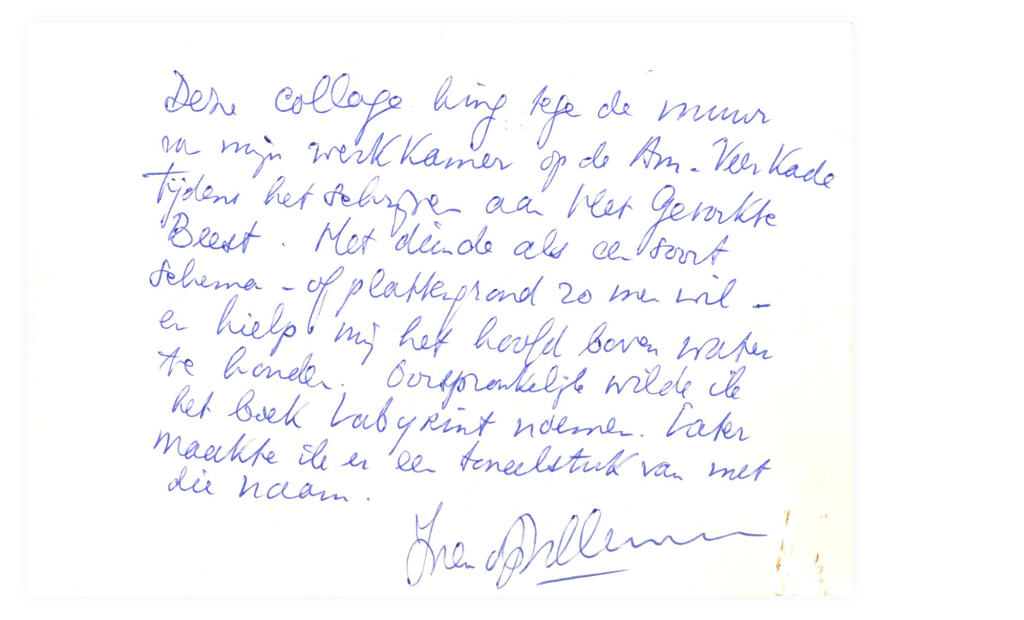 Deze collage hing tege de muur
va mijn werkkamer op de Am. Veerkade
Tijdens het schrijven aan Het Gevorkte
Beest. Het diende als een soort
schema - of plattegrond zo men wil -
en hielp mij het hoofd boven water
te houden. Oorspronkelijk wilde ik
het boek Labyrint noemen. Later
maakte ik er een toneelstuk van met
die naam.